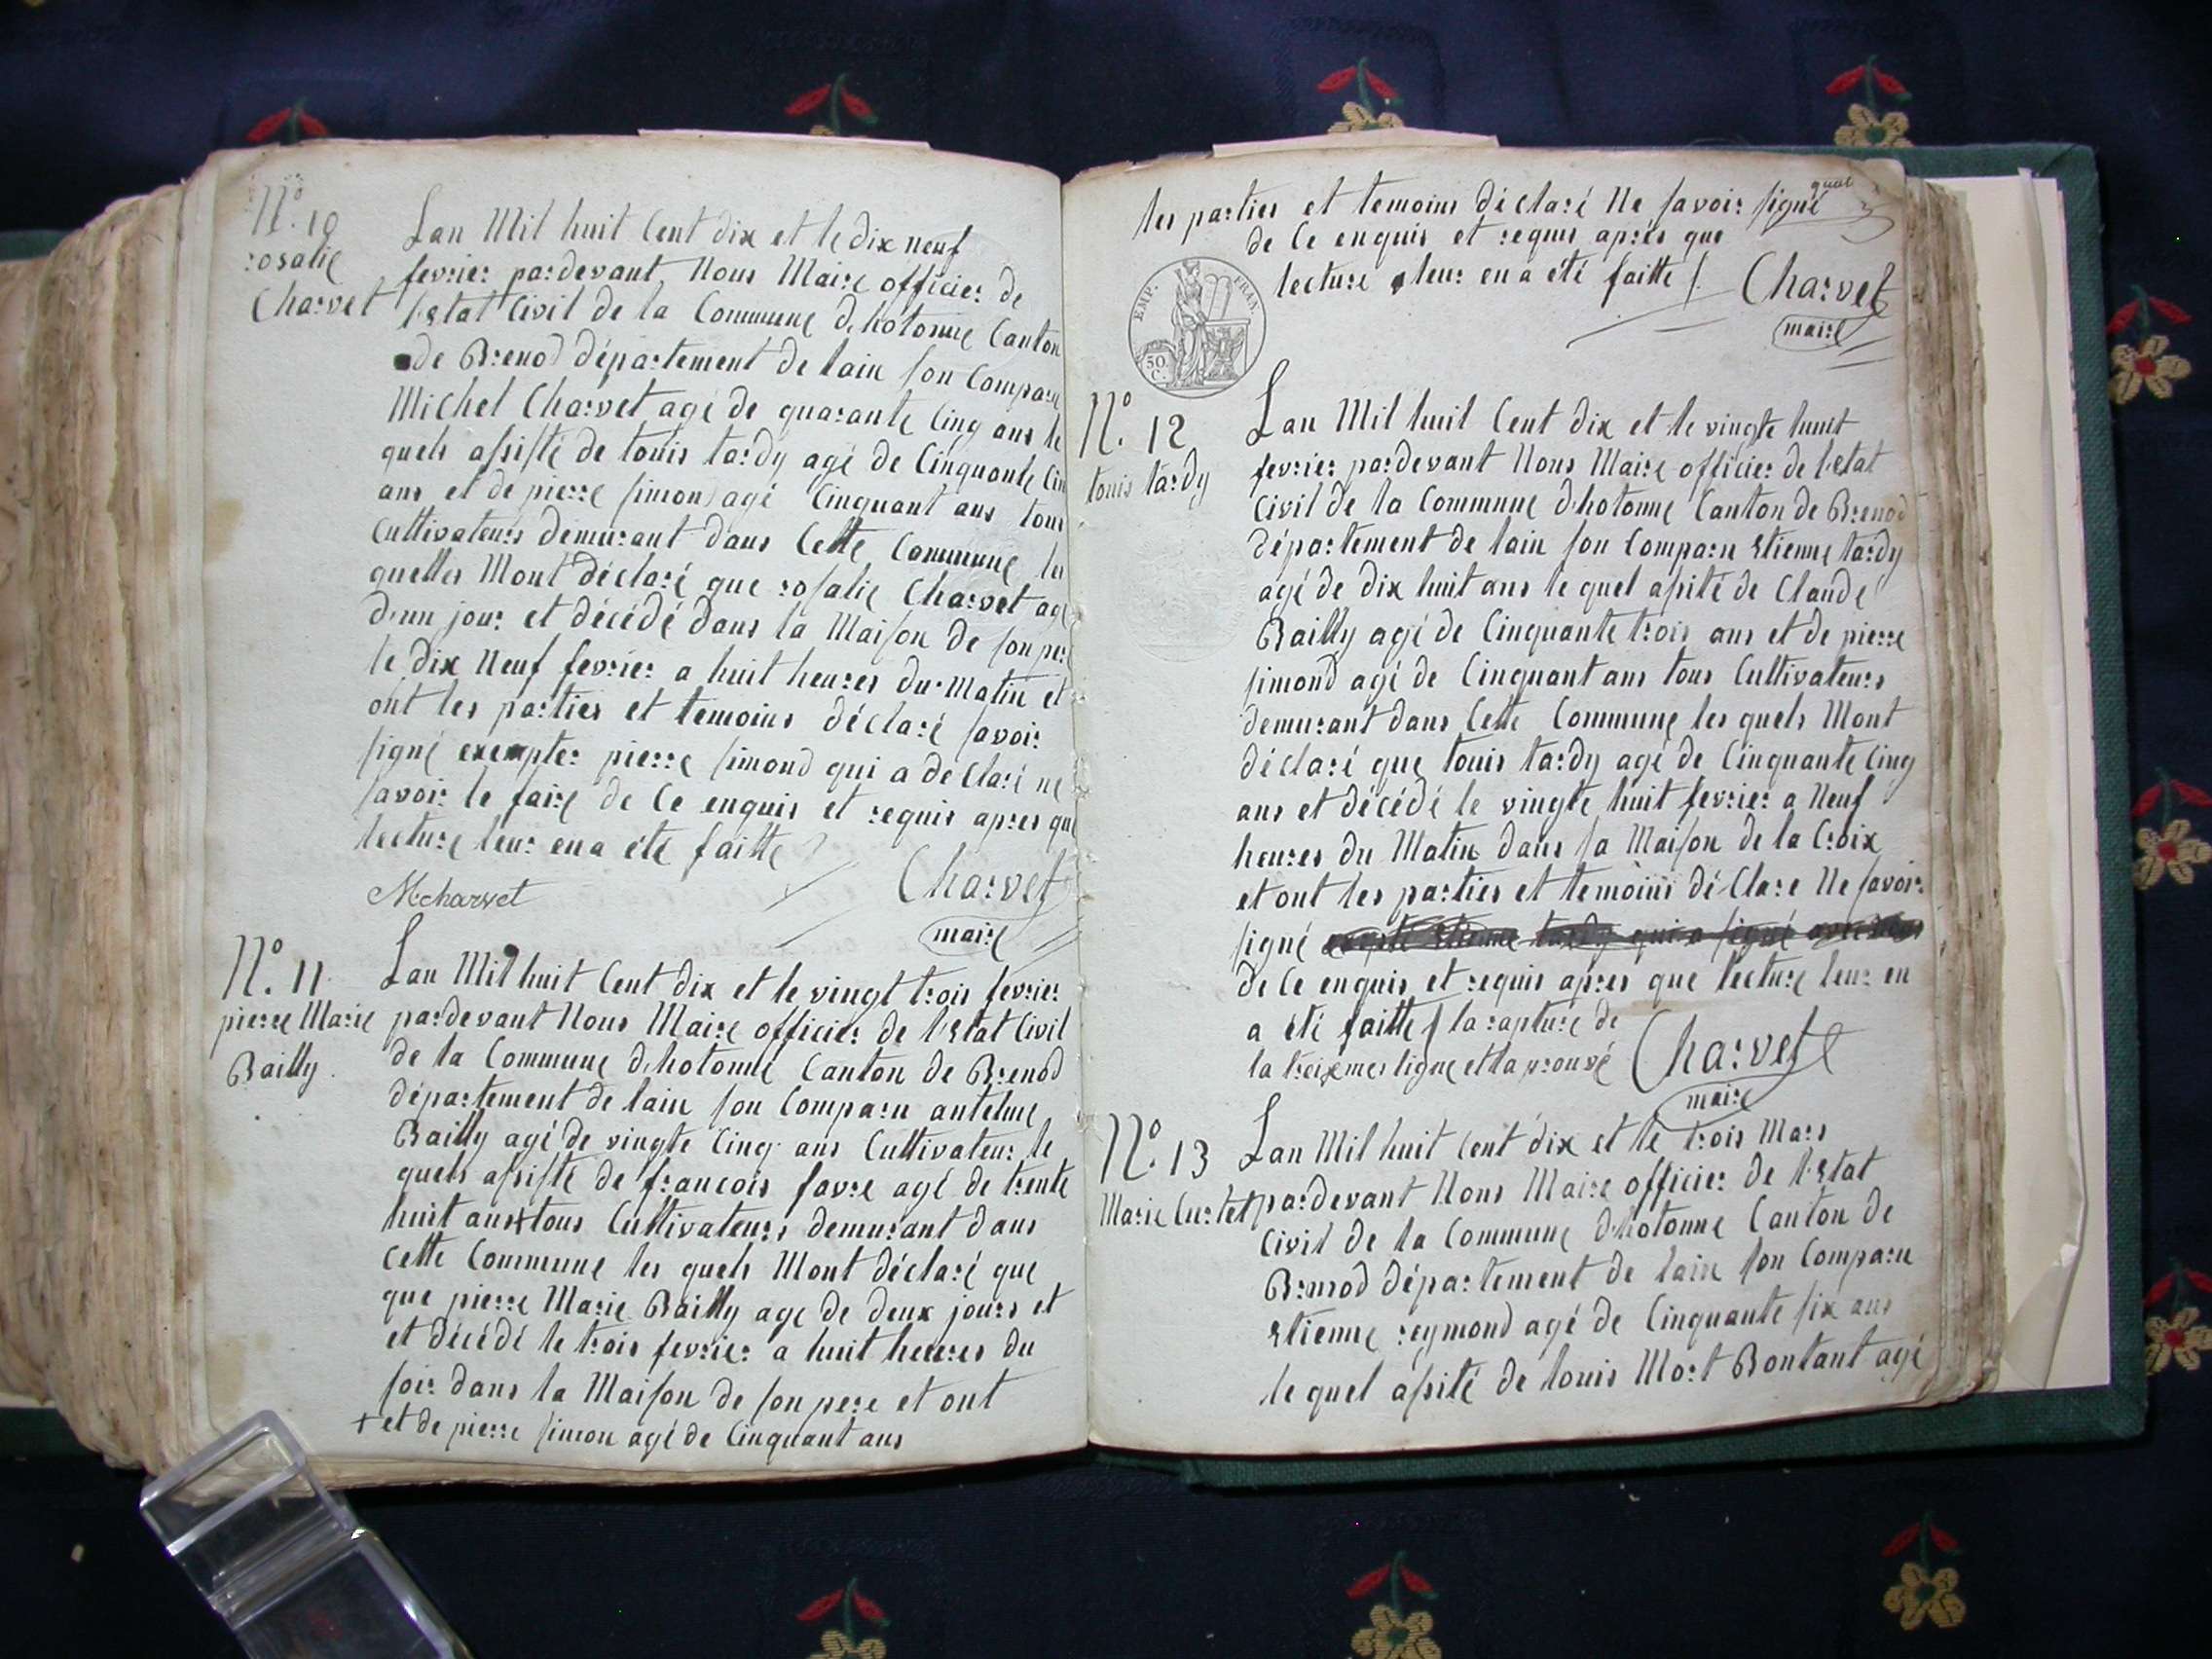 N.° 10
rosalie
Charvet
Lan Mil huit Cent dix et le dix neuf
fevrier pardevant Nous Maire officier de
l'Etat Civil de la Commune d'hotonne Canton
de Brenod département de lain son Comparu
Michel Charvet agé de quarante Cinq ans le
quels assisté de louis tardy agé de Cinquante Cin
ans et de pierre simon agé Cinquant ans tous
Cultivateurs demurant dans Cette Commune les
quelles Mont déclaré que rosalie Charvet agé
d'un jour et décédé dans la Maison de son per
le dix Neuf fevrier a huit heures du Matin et
ont les parties et temoins déclaré savoir
signé exempter pierre simond qui a de Claré ne
savoir le faire de Ce enquis et requis apres que
lecture leur en a été faitte
Mcharvet
Charvet
maire
N.° 11
pierre Marie
Bailly.
Lan Mil huit Cent dix et le vingt trois fevrier
pardevant Nous Maire officier de l'Etat Civil
de la Commune d'hotonne Canton de Brenod
département de lain son Comparu antelme
Bailly agé de vingte Cinq ans Cultivateur le
quels assisté de francois favre agé de trente
huit ans+tous Cultivateurs demurant dans
Cette Commune les quels Mont déclaré que
que pierre Marie Bailly age de deux jours et
et décédé le trois fevrier a huit heures du
soir dans la Maison de son pere et ont
+ et de pierre simon agé de Cinquant ans
les parties et temoins déclaré Ne savoir signé
de Ce enquis et requis après que
lecture leur en a été faitte /. Charvet
maire
EMP. FRAN.
50 C.
N.° 12
louis tardy
Lan Mil huit Cent dix et le vingte huit
fevrier pardevant Nous Maire officier de l'etat
Civil de la Commune d'hotonne Canton de Brenod
département de lain son Comparu Etienne tardy
agé de dix huit ans le quel assité de Claude
Bailly agé de Cinquante trois ans et de pierre
simond agé de Cinquant ans tous Cultivateurs
demurant dans Cette Commune les quels Mont
déclaré que louis tardy agé de Cinquante Cinq
ans et décédé le vingte huit fevrier a Neuf
heures du Matin dans sa Maison de la Croix
et ont les parties et temoins dé Clare Ne savoir
signé Etienne tardy qui a signé
de Ce enquis et requis apres que lecture leur en
a été faitte / la rapture de
la treixmes ligne et la prouvé Charvet
maire
N.° 13
Marie Curtet
Lan Mil huit Cent dix et le trois Mars
pardevant Nous Maire officier de l'Etat
Civil de la Commune d'hotonne Canton de
Brenod département de lain son Comparu
Etienne reymond agé de Cinquante six ans
le quel assité de louis Mort Bontant agé